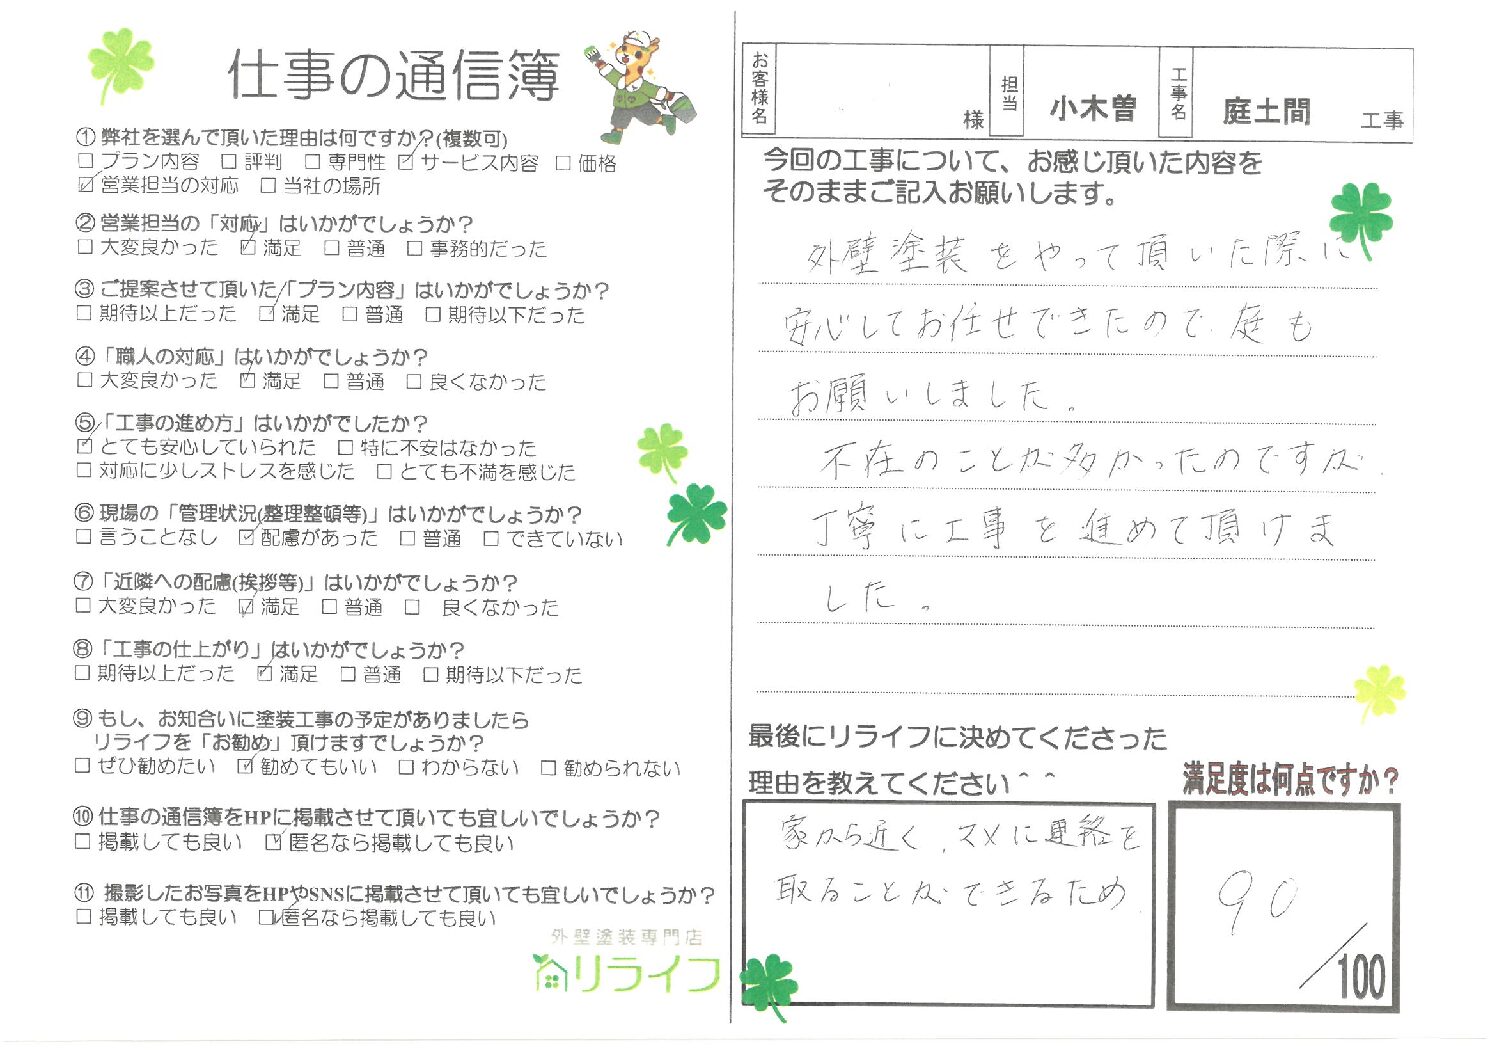 仕事の通信簿
① 弊社を選んで頂いた理由は何ですか?(複数可)
□ プラン内容 □ 評判 □ 専門性 ☑ サービス内容 □ 価格
☑ 営業担当の対応 □ 当社の場所
② 営業担当の「対応」はいかがでしょうか?
□ 大変良かった ☑ 満足 □ 普通 □ 事務的だった
③ ご提案させて頂いた「プラン内容」はいかがでしょうか?
□ 期待以上だった ☑ 満足 □ 普通 □ 期待以下だった
④「職人の対応」はいかがでしょうか?
□ 大変良かった ☑ 満足 □ 普通 □ 良くなかった
⑤「工事の進め方」はいかがでしたか?
☑ とても安心していられた □ 特に不安はなかった
□ 対応に少しストレスを感じた □ とても不満を感じた
⑥ 現場の「管理状況(整理整頓等)」はいかがでしょうか?
□ 言うことなし ☑ 配慮があった □ 普通 □ できていない
⑦「近隣への配慮(挨拶等)」はいかがでしょうか?
□ 大変良かった ☑ 満足 □ 普通 □ 良くなかった
⑧「工事の仕上がり」はいかがでしょうか?
□ 期待以上だった ☑ 満足 □ 普通 □ 期待以下だった
⑨ もし、お知合いに塗装工事の予定がありましたら
リライフを「お勧め」頂けますでしょうか?
□ ぜひ勧めたい ☑ 勧めてもいい □ わからない □ 勧められない
⑩ 仕事の通信簿をHPに掲載させて頂いても宜しいでしょうか?
□ 掲載しても良い ☑ 匿名なら掲載しても良い
⑪ 撮影したお写真をHPやSNSに掲載させて頂いても宜しいでしょうか?
□ 掲載しても良い ☑ 匿名なら掲載しても良い
外壁塗装専門店
リライフ
お客様名 様 担当 小木曽 工事名 庭土間 工事
今回の工事について、お感じ頂いた内容を
そのままご記入お願いします。
外壁塗装をやって頂いた際に
安心してお任せできたので、庭も
お願いしました。
不在のことが多かったのですが、
丁寧に工事を進めて頂けま
した。
最後にリライフに決めてくださった
理由を教えてください＾＾
家から近く、スメに連絡を
取ることができるため
満足度は何点ですか?
90
/100